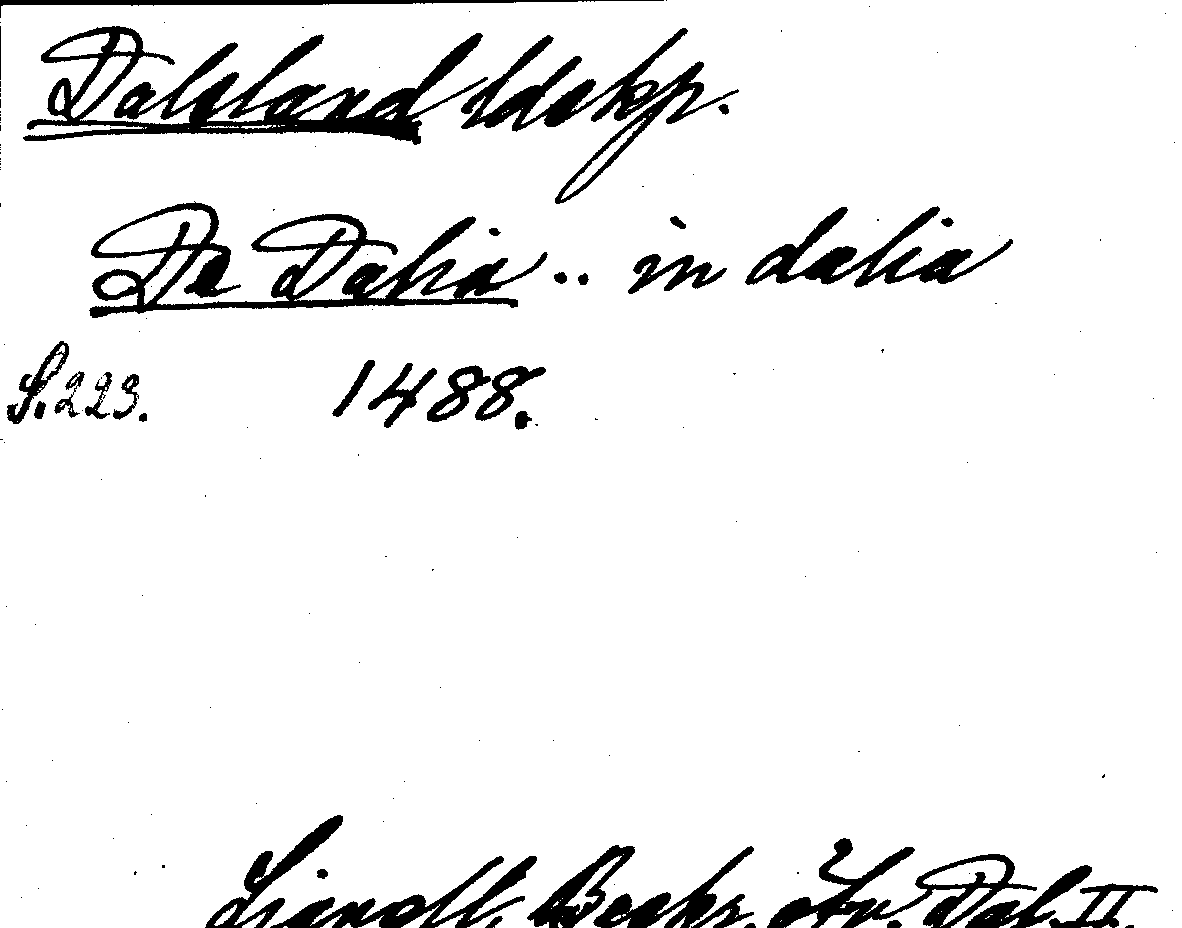 Dalsland ldskp.
De Dalia .. in dalia
S. 223. 1488.
Lignell, Beskr. öfv. Dal. II.